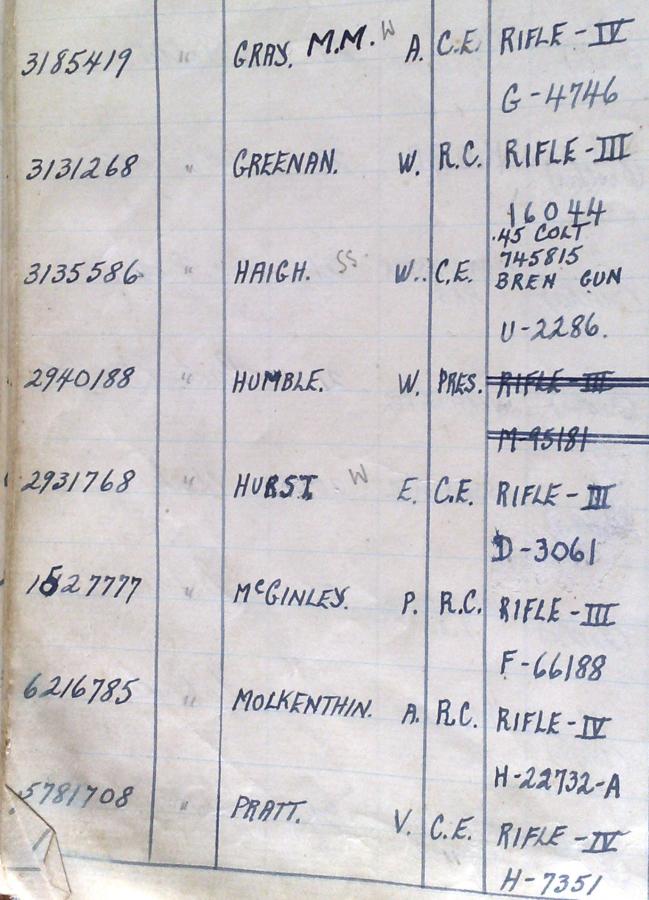 3185419 " GRAY. M.M. W A. C.E. RIFLE - IV
G - 4746
3131268 " GREENAN. W. R.C. RIFLE - III
16044
.45 COLT
745815
3135586 " HAIGH. SS. W.. C.E. BREN GUN
U-2286.
2940188 " HUMBLE. W. PRES. RIFLE - III
M-95181
2931768 " HURST W E. C.E. RIFLE - III
D-3061
1527777 " McGINLEY. P. R.C. RIFLE - III
F-66188
6216785 " MOLKENTHIN. A. R.C. RIFLE - IV
H-22732-A
5781708 " PRATT. V. C.E. RIFLE - IV
H-7351